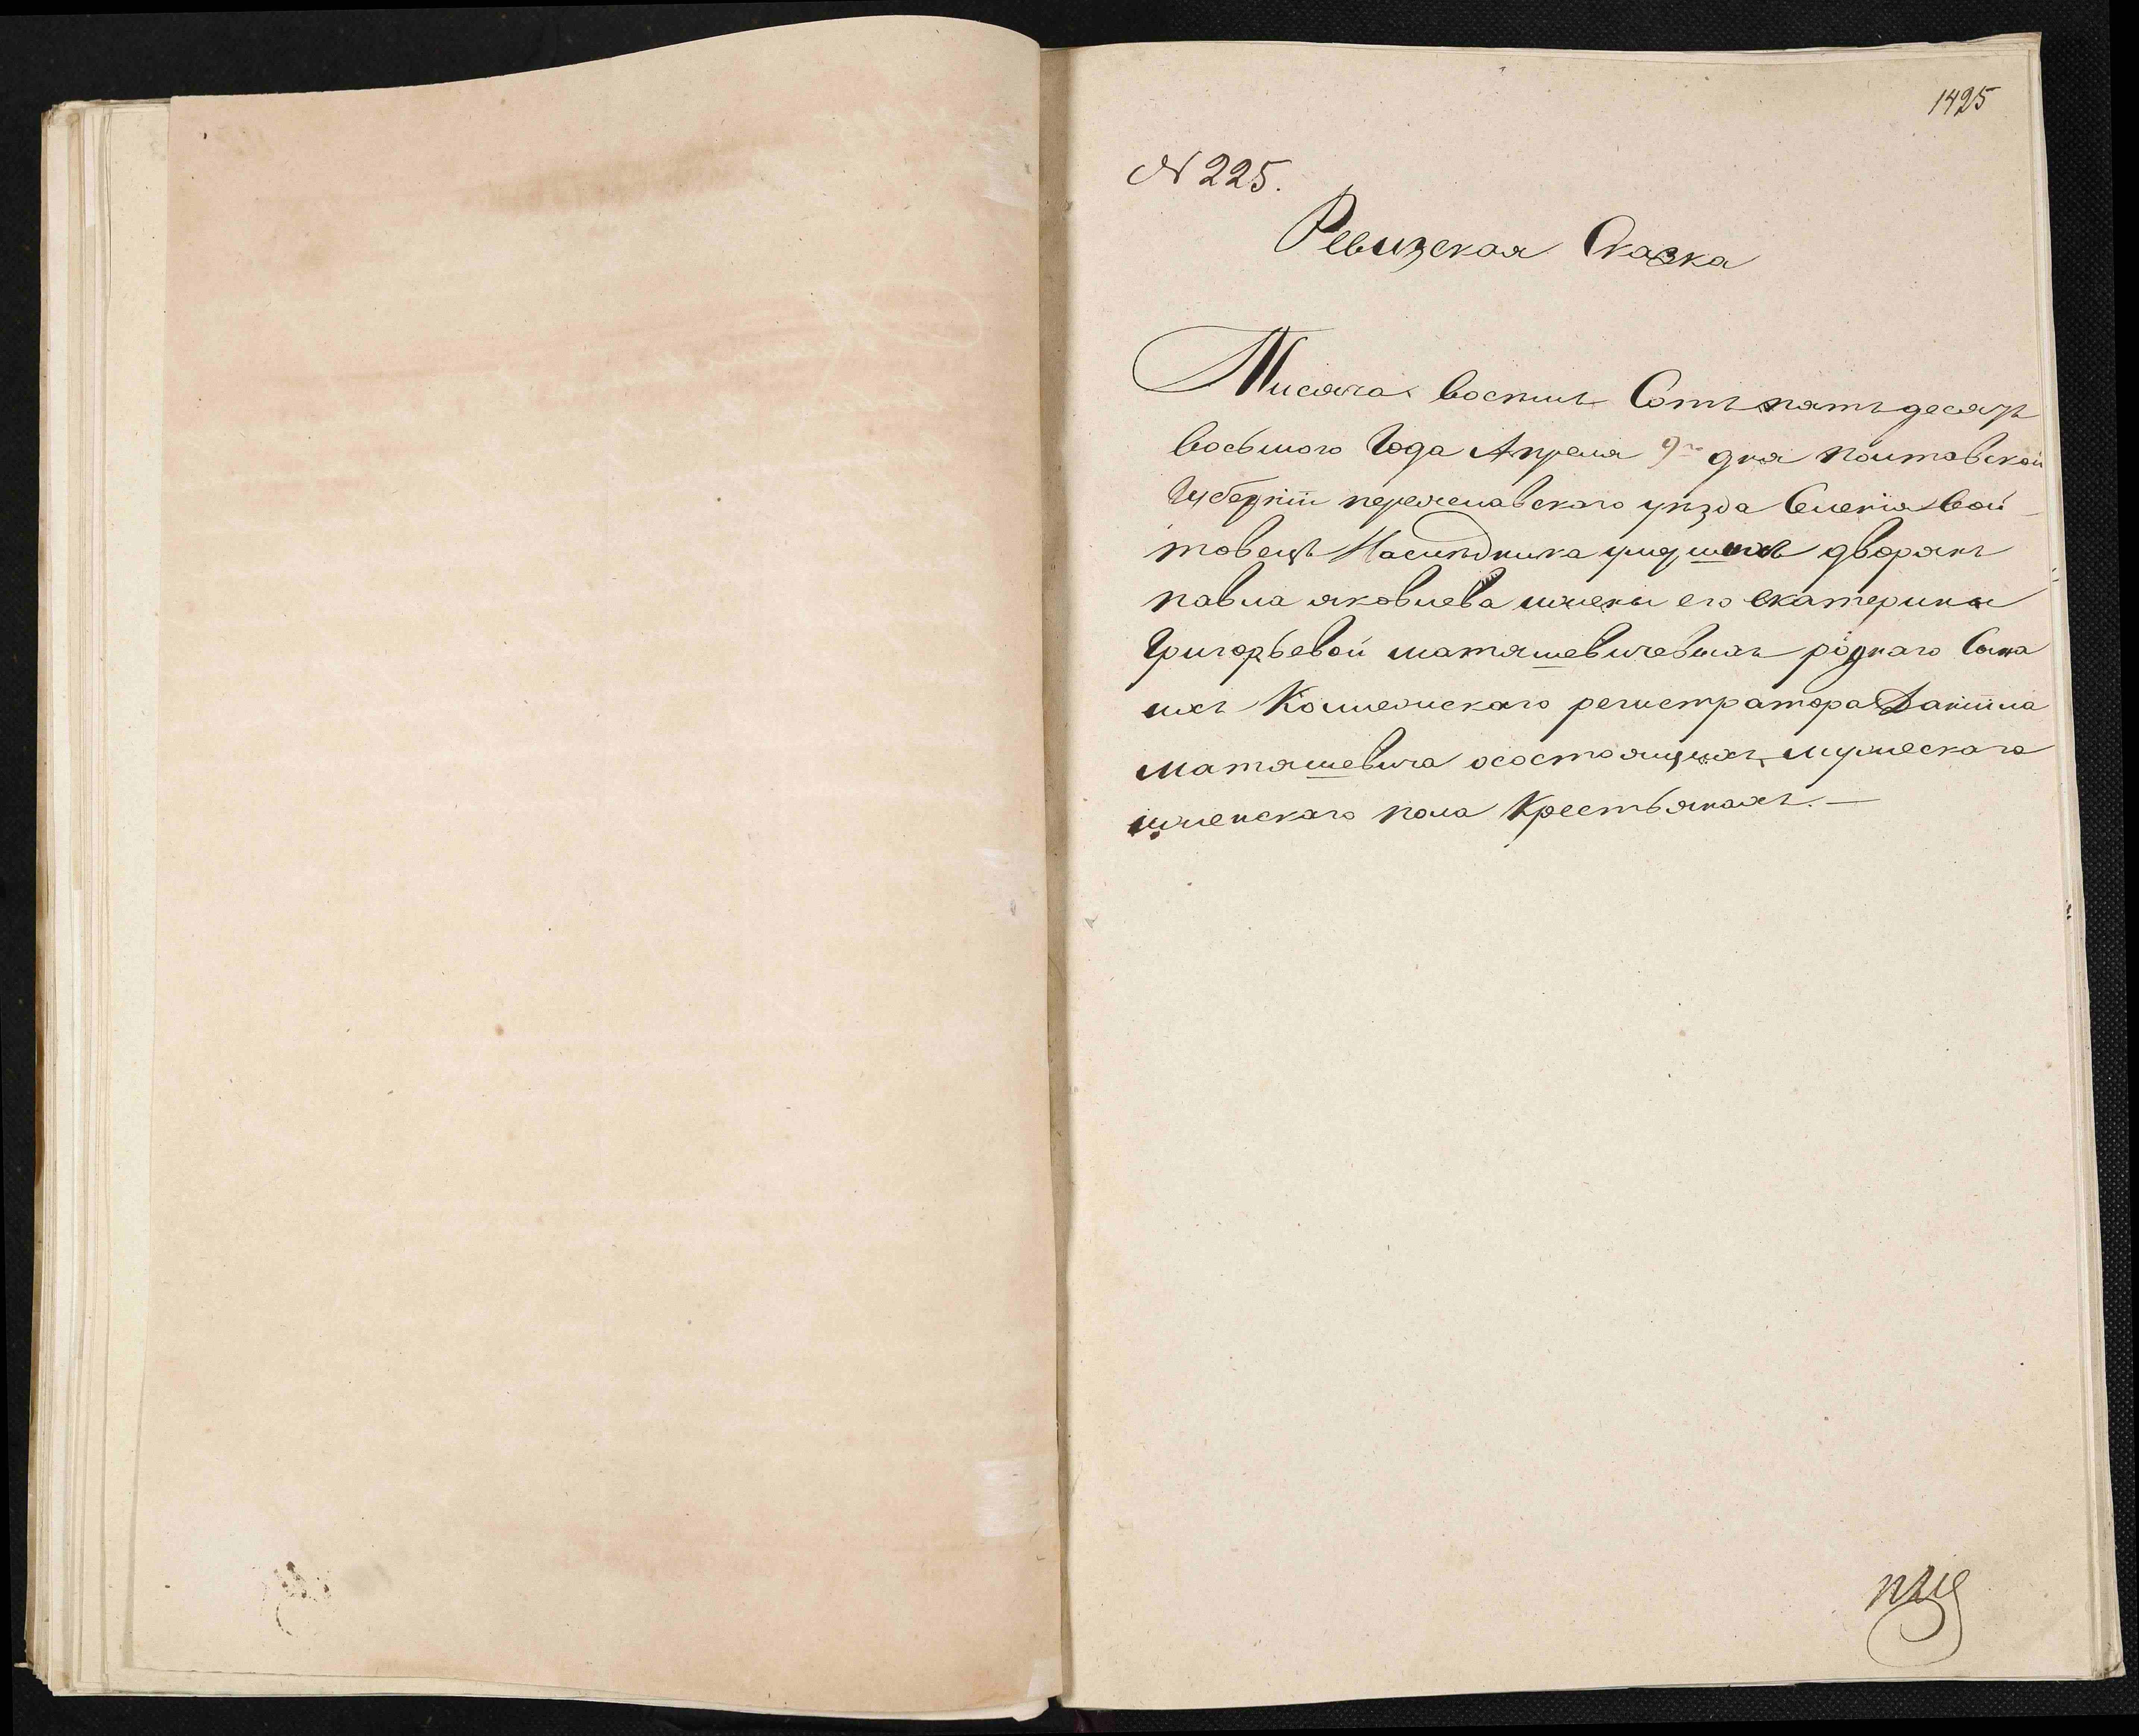 1425
N 225.
Ревизская Сказка
Тисяча восемь Сотъ пятъдесятъ
восьмого Года Апреля 9го дня полтавской
Губерніи переяславского уѣзда Селенія вой
товецъ Наслѣдника умершихъ дворянъ
павла яковлева жены его екатерины
Григорьевой матяшевичевыхъ роднаго Сына
ихъ Колежскаго регистратора Даніила
матяшевича осостоящихъ мужескаго
женскаго пола Крестьянахъ. —